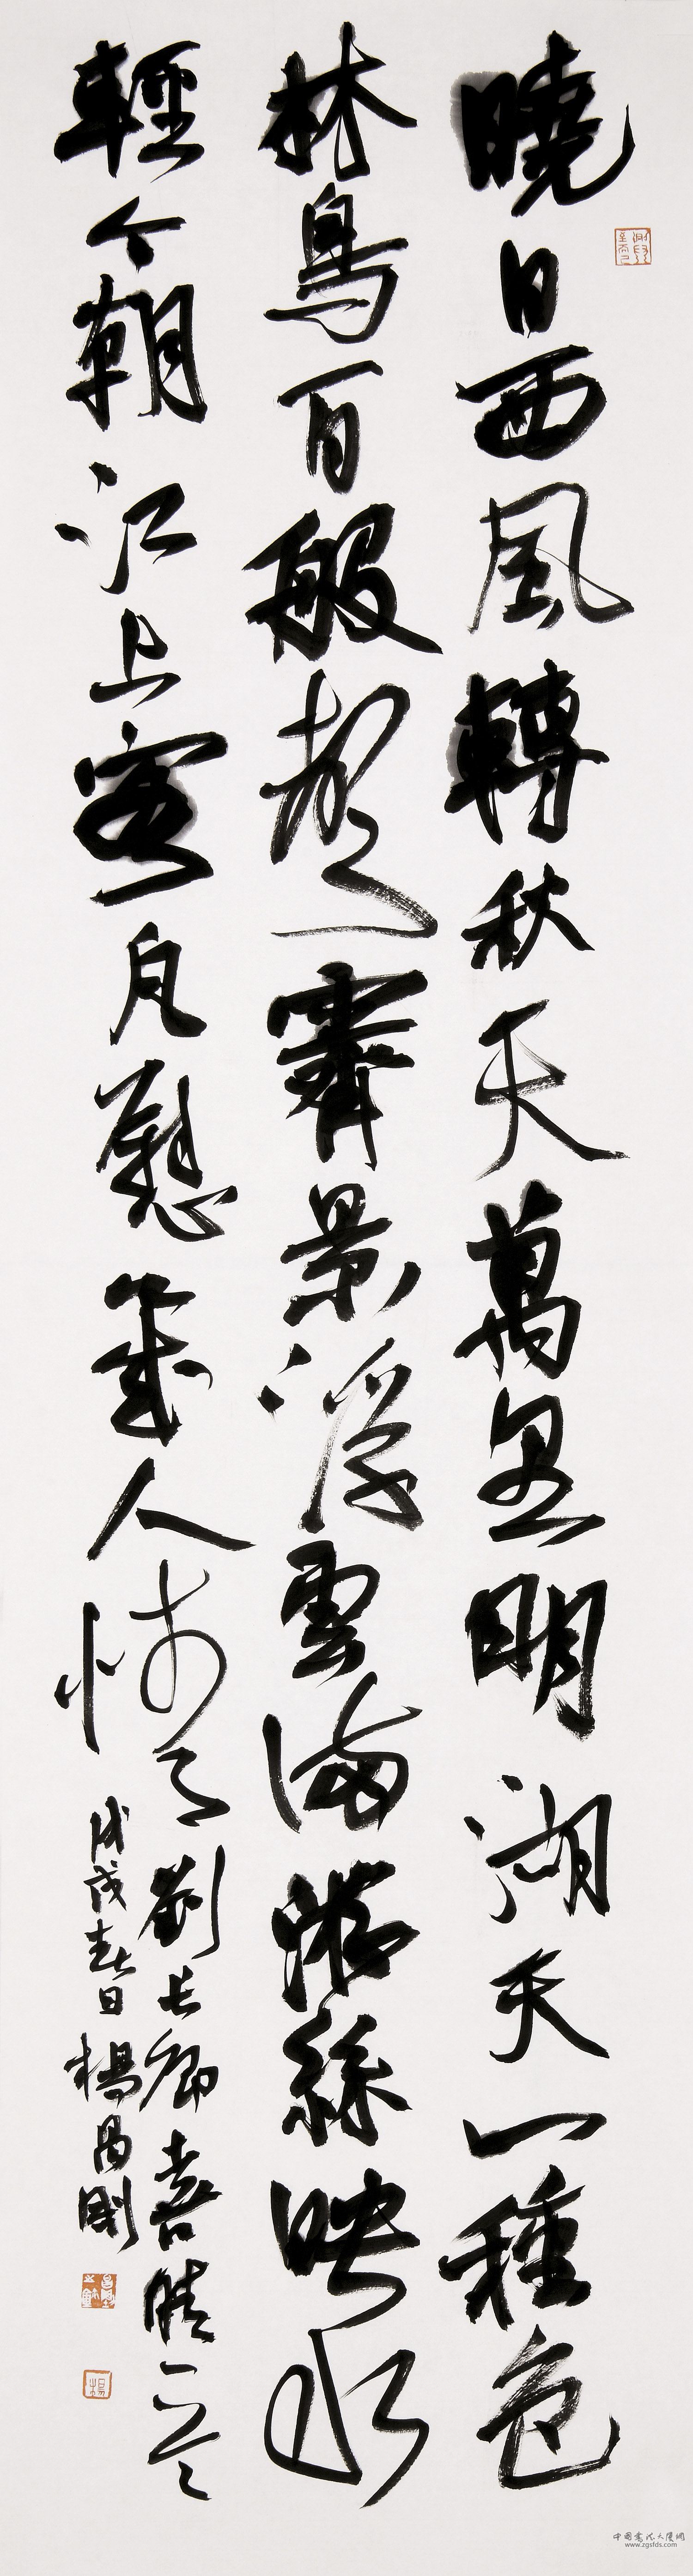 曉日西風轉秋天萬里明湖天一種色
林鳥百般聲霽景浮雲滿游絲映水
輕今朝江上客凡慰幾人情
劉長卿喜晴一首
戊戌春日楊昌剛
中國書法大廈網
www.zgsfds.com